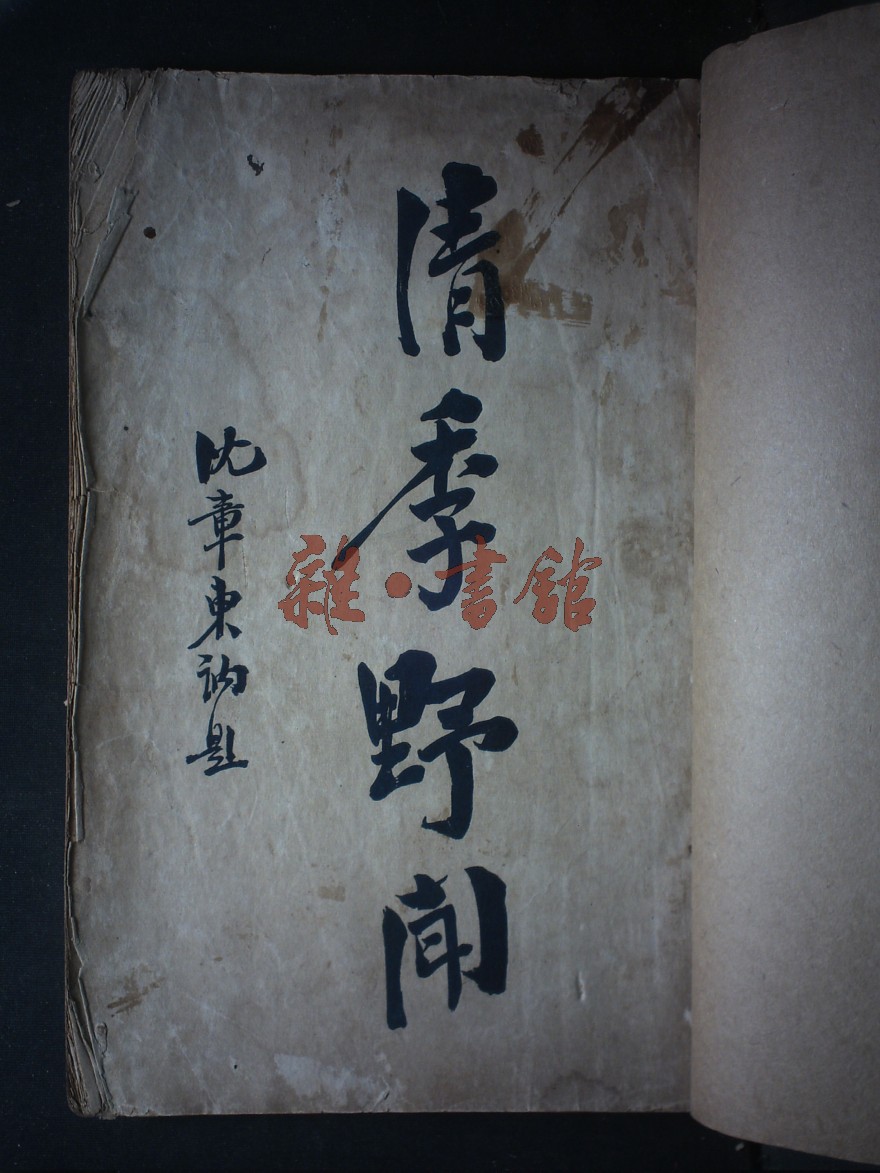 清季野聞
沈章東訥題
雜·書館